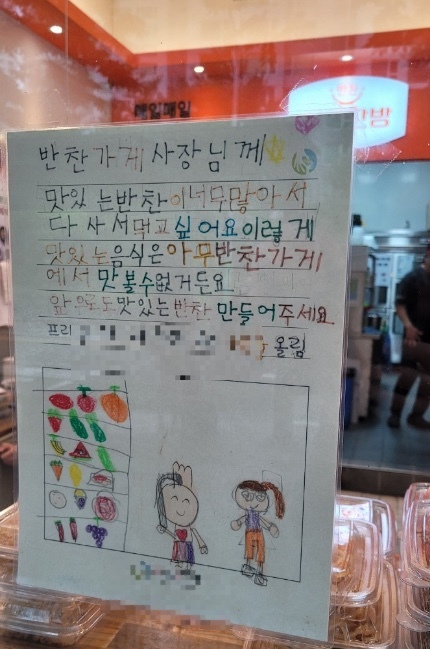 매일매일
밥
반찬가게 사장님께
맛있는반찬이너무많아서
다 사서먹고 싶어요이렇게
맛있는음식은아무반찬가게
에서 맛볼수없거든요
앞우로도맛있는반찬 만들어주세요
프리
올림